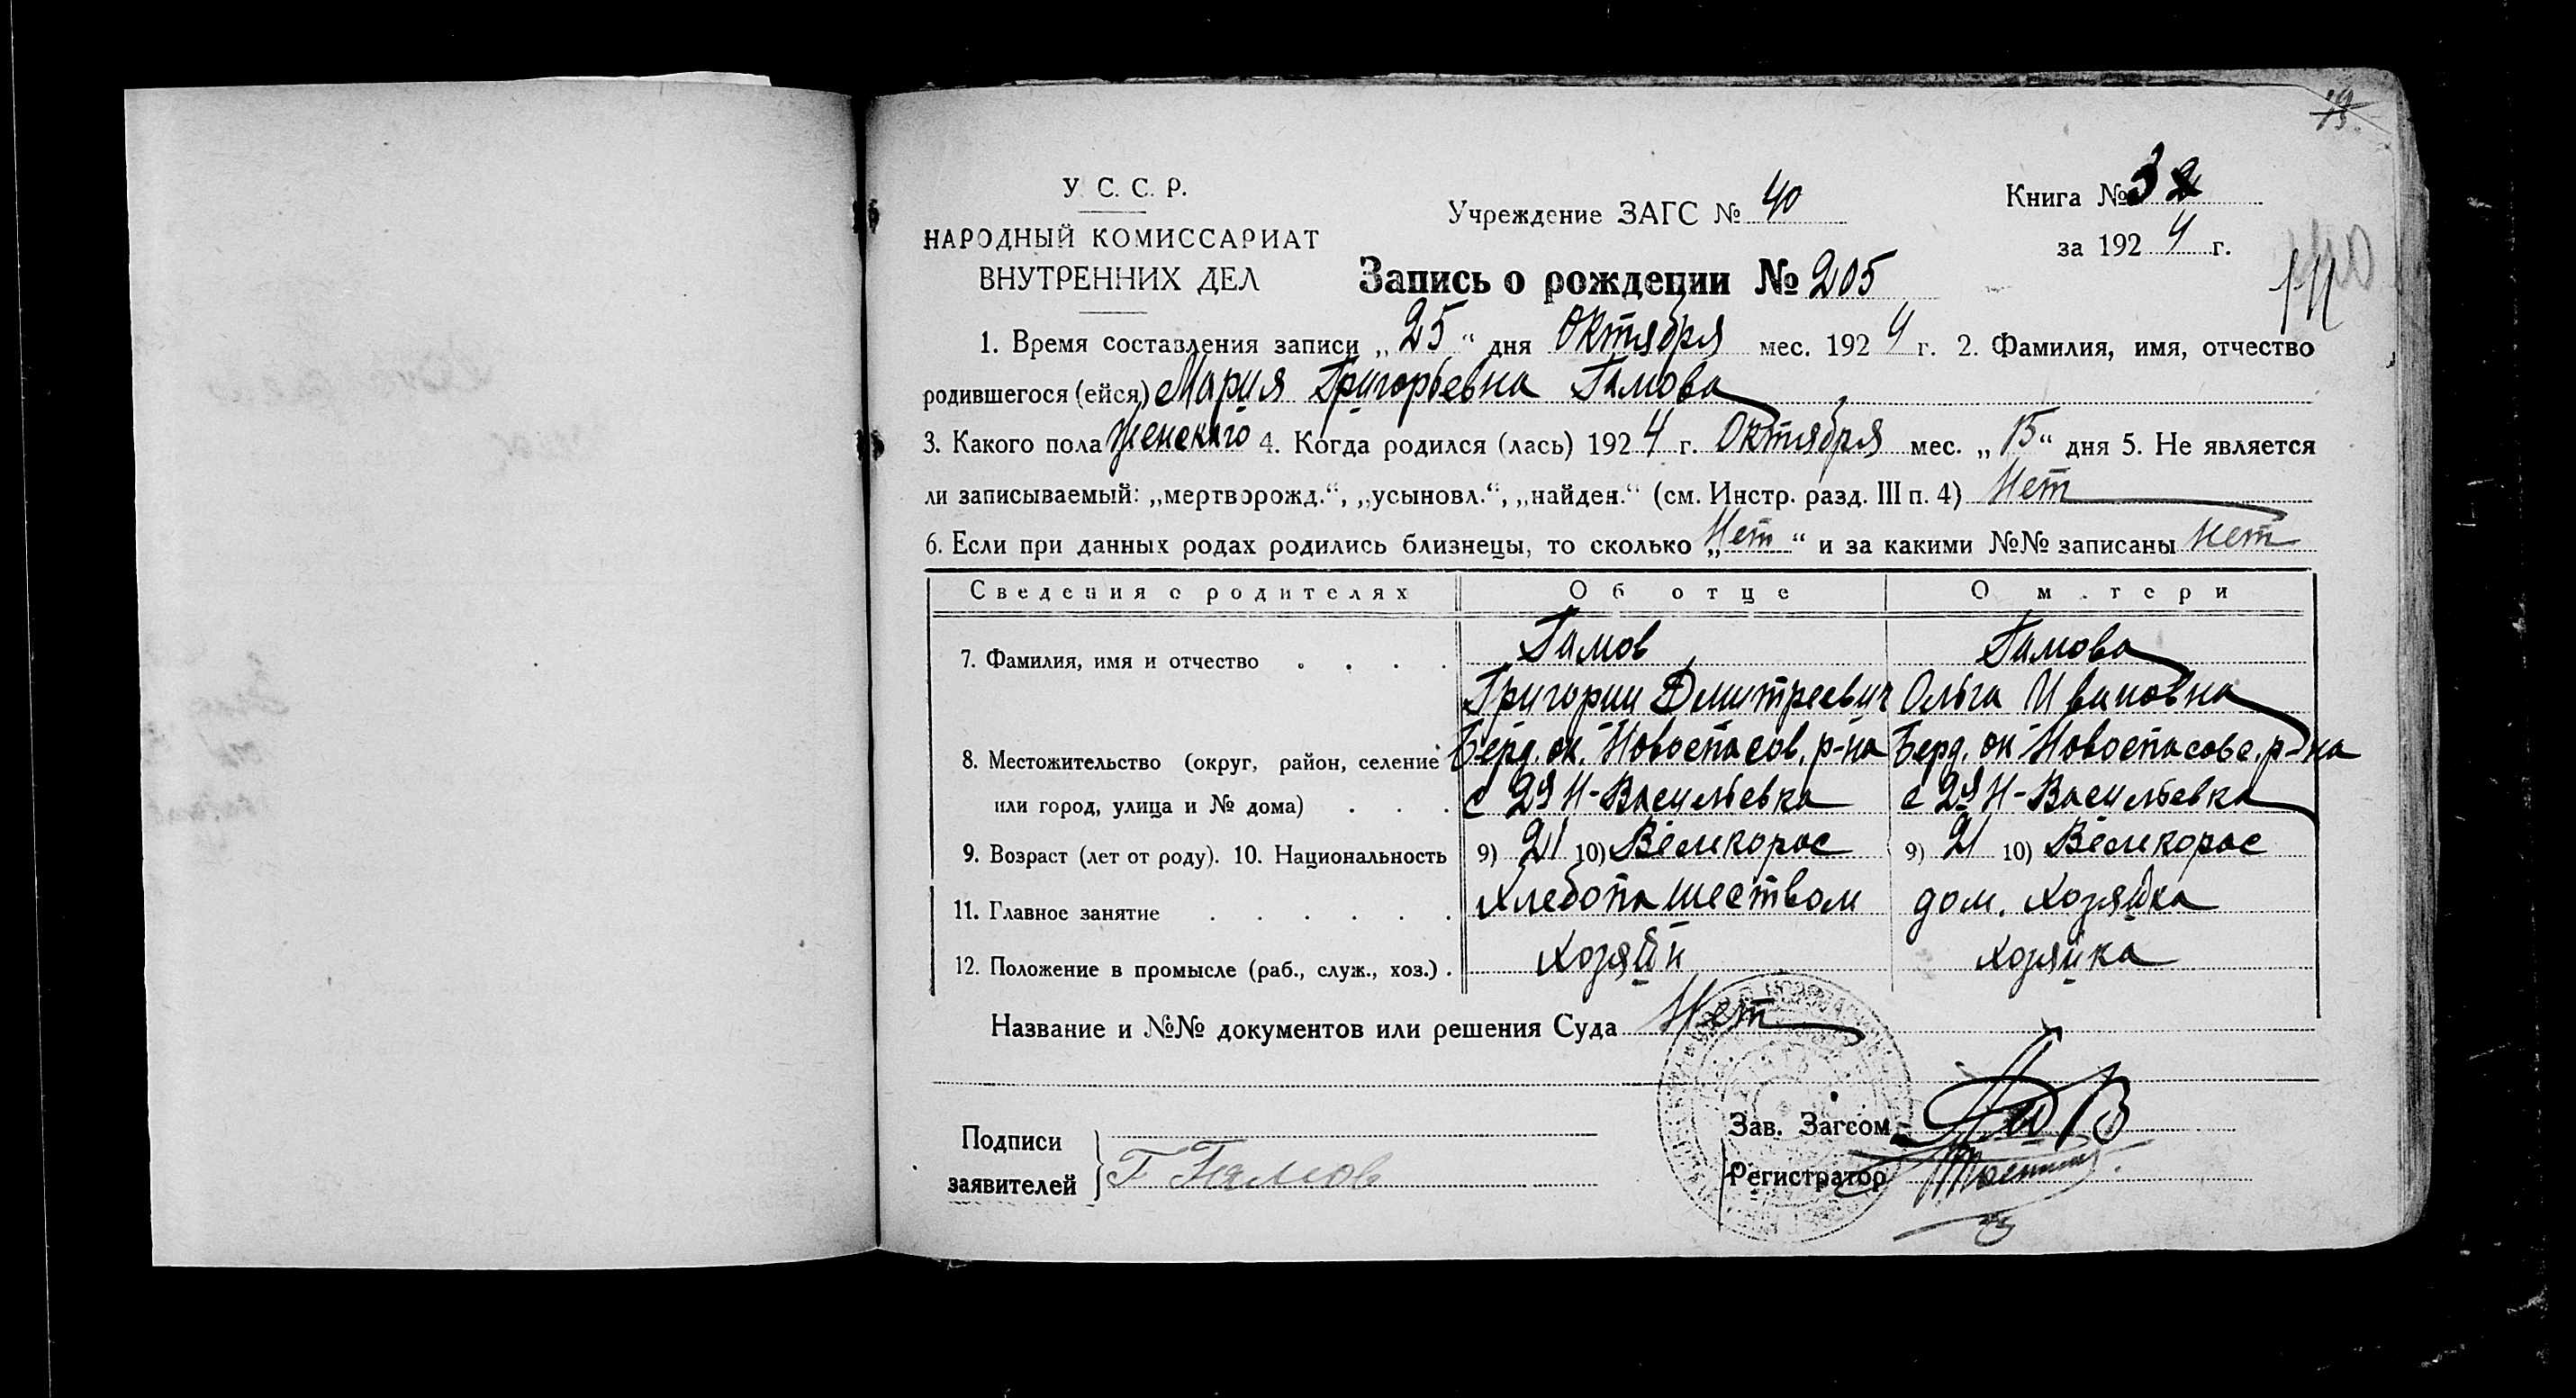 19.
У. С. С. Р.
НАРОДНЫЙ КОМИССАРИАТ
ВНУТРЕННИХ ДЕЛ
Учреждение ЗАГС № 40
Книга № 32
за 1924 г.
Запись о рождении № 205
1. Время составления записи „25“ дня Октября мес. 1924 г. 2. Фамилия, имя, отчество
родившегося (ейся) Мария Григорьевна Гамова
3. Какого пола женскаго 4. Когда родился (лась) 1924 г. Октября мес. „15“ дня 5. Не является
ли записываемый: „мертворожд.“, „усыновл.“, „найден.“ (см. Инстр. разд. III п. 4) Нет
6. Если при данных родах родились близнецы, то сколько „Нет“ и за какими №№ записаны нет
Сведения о родителях Об отце О м.тери
7. Фамилия, имя и отчество . . . . Гамов Гамова
Григории Дмитреевич Ольга Ивановна
8. Местожительство (округ, район, селение Берд. ок. Новоспасов. р-на Берд. ок Новоспасовс. р-на
или город, улица и № дома) . . . с 2я Н-Васильевка с 2я Н-Васильевка
9. Возраст (лет от роду). 10. Национальность 9) 21 10) Великорос 9) 21 10) Великорос
11. Главное занятие . . . . . . Хлебопашеством дом. хозяйка
12. Положение в промысле (раб., служ., хоз.) . хозяйн хозяйка
Название и №№ документов или решения Суда Нет
Подписи
заявителей
Г Гамов
Зав. Загсом
Регистратор